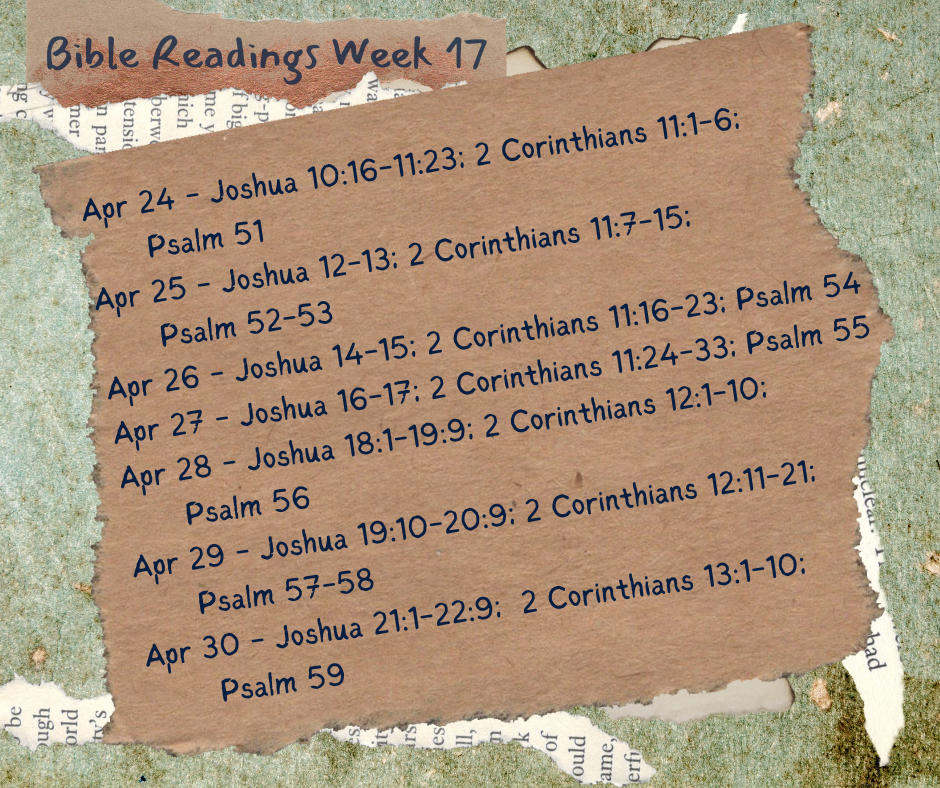 Bible Readings Week 17
Apr 24 - Joshua 10:16-11:23; 2 Corinthians 11:1-6;
Psalm 51
Apr 25 - Joshua 12-13; 2 Corinthians 11:7-15;
Psalm 52-53
Apr 26 - Joshua 14-15; 2 Corinthians 11:16-23; Psalm 54
Apr 27 - Joshua 16-17; 2 Corinthians 11:24-33; Psalm 55
Apr 28 - Joshua 18:1-19:9; 2 Corinthians 12:1-10;
Psalm 56
Apr 29 - Joshua 19:10-20:9; 2 Corinthians 12:11-21;
Psalm 57-58
Apr 30 - Joshua 21:1-22:9; 2 Corinthians 13:1-10;
Psalm 59